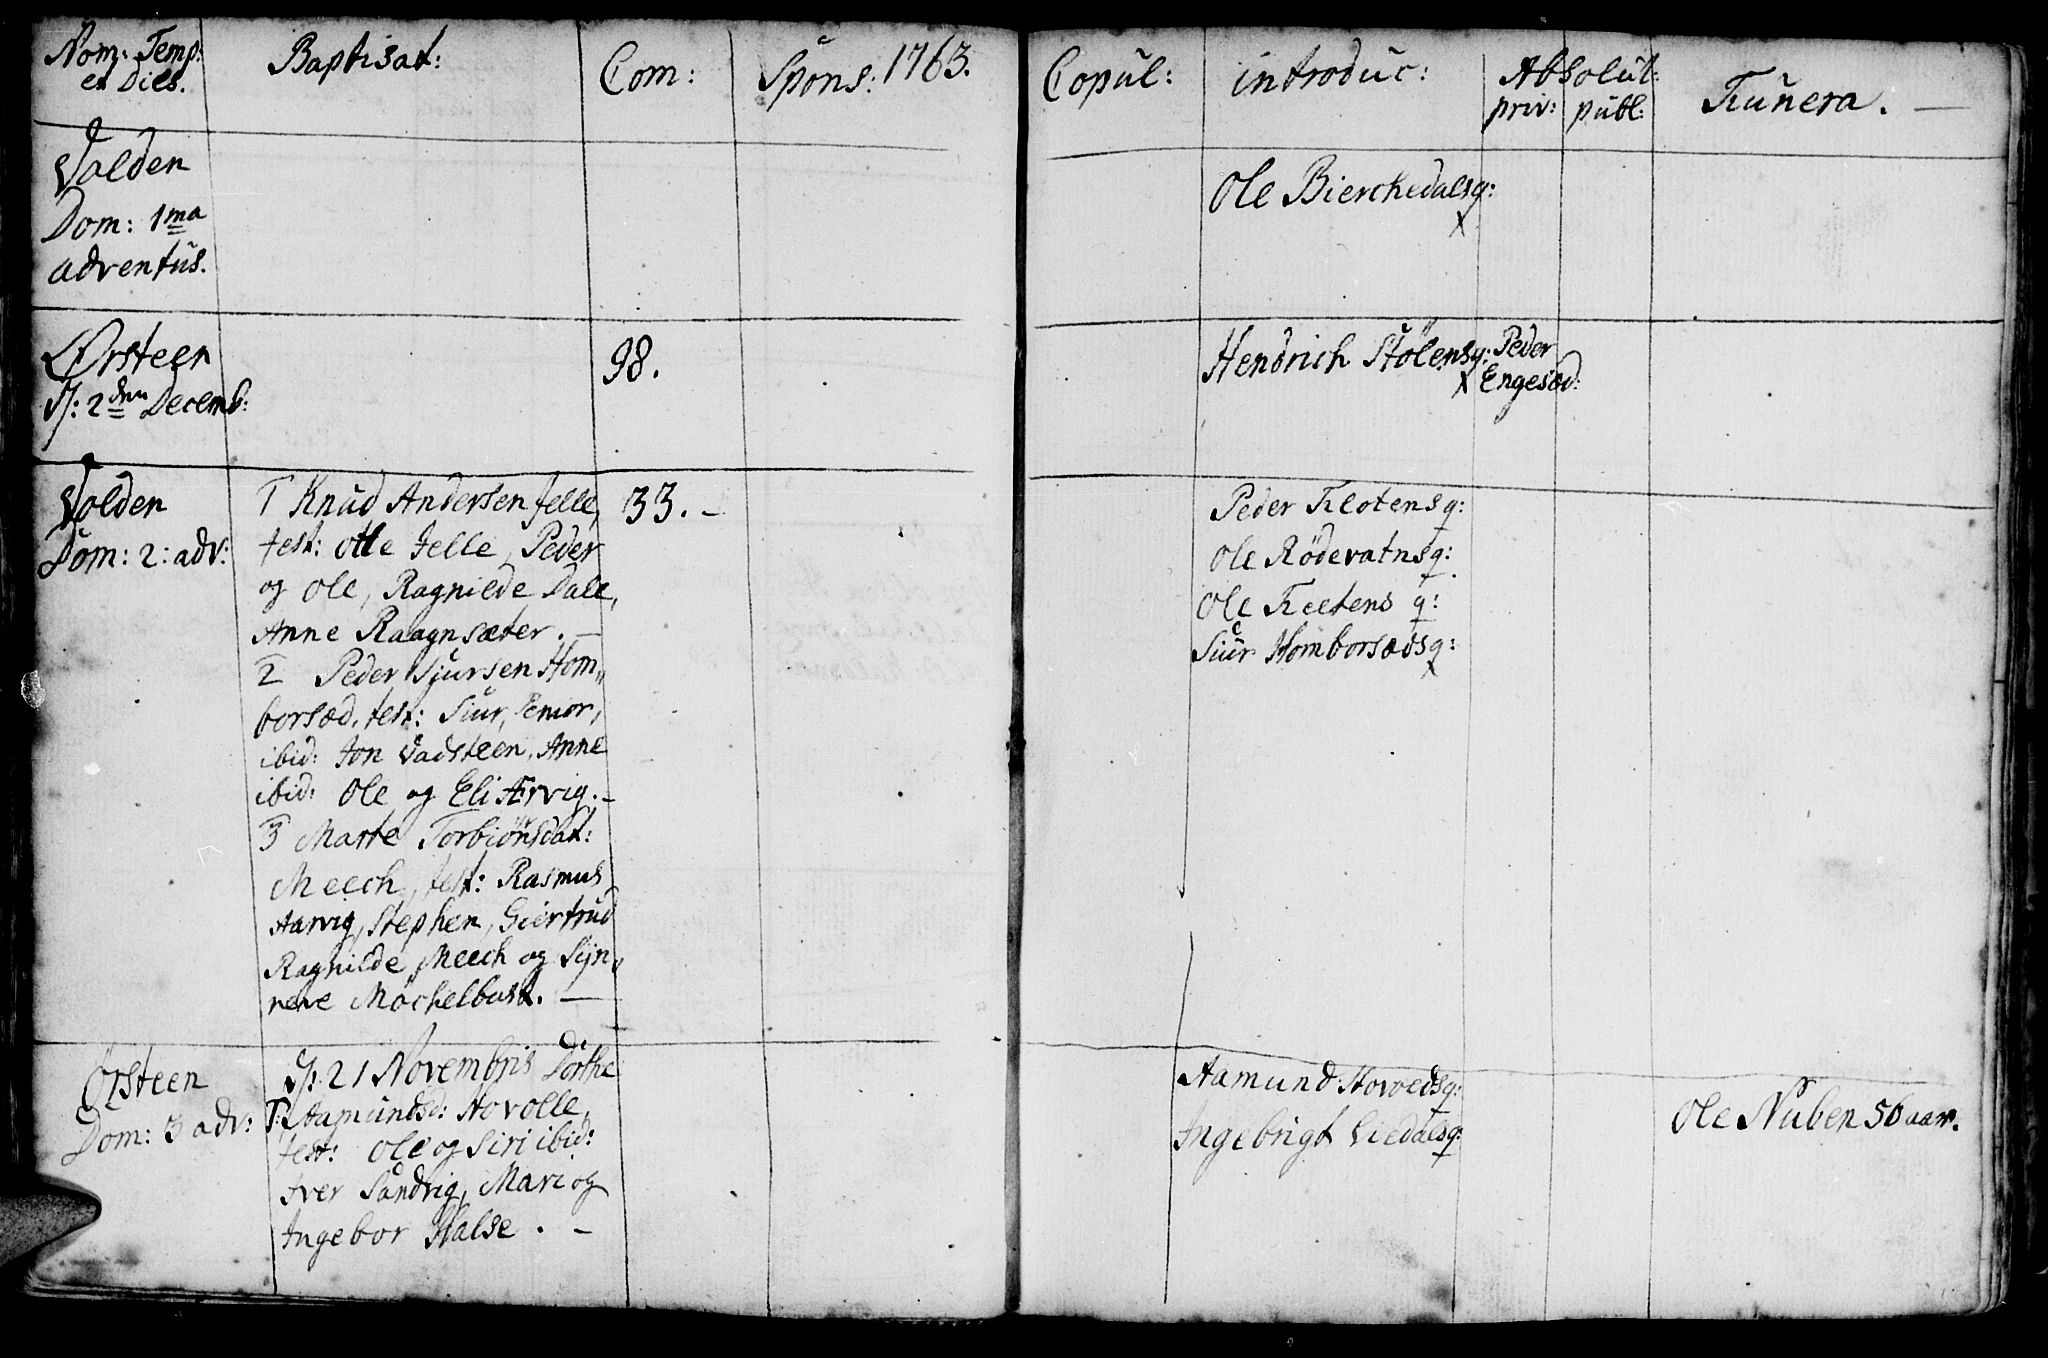 Nom: Temp:
et Dies.
Baptisat:
Com:
Spons: 1763.
Copul:
introduc:
Absolut:
priv: publ:
Funera. —
Volden
Dom: 1ma
adventus.
Ole Bierchedalsq:
x
Ørsteen
d. 2den Decemb:
98.
Hendrich Stölensq:
x
Peder
Engesæd:
Volden
Dom: 2: adv:
1 Knud Andersen Jelle,
test: Otte Jelle, Peder
og Ole, Ragnilde Dale,
Anne Raagnsæter. —
2 Peder Sjursen Hom„
borsæd. test: Siur, Senior,
ibid: Jon Vadsteen, Anne
ibid: Ole og Eli Ærvig. —
3 Marte Torbiönsdat:
Meech, test: Rasmus
Aarvig, Stephen, Giertrud
Ragnilde Meech og Syn„
neve Möchelbust. —
33. —
Peder Flotensq:
Ole Rödevatnsq:
Ole Fletens q:
Siur Homborsædsq:
x
Orsteen
Dom: 3 adv:
21 Novembris Dorthe
T: Aamundsd: Hovolle,
test: Ole og Siri ibid:
Iver Sandvig, Mari og
Ingebor Halse. —
Aamund Hovedsq:
Ingebrigt Liedalsq:
Ole Nuben 56 aar.